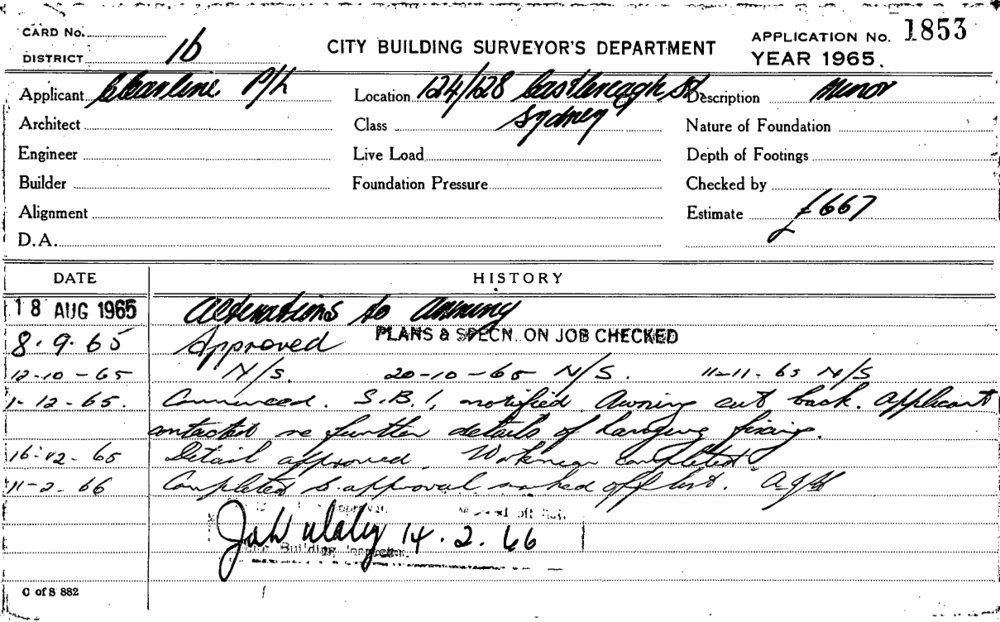 CARD No.
DISTRICT 1b
CITY BUILDING SURVEYOR'S DEPARTMENT
APPLICATION No. 1853
YEAR 1965.
Applicant Clearline P/L
Location 124/128 Castlereagh St
Sydney
Description Minor
Architect
Class
Nature of Foundation
Engineer
Live Load
Depth of Footings
Builder
Foundation Pressure
Checked by
Alignment
Estimate £667
D.A.
DATE HISTORY
18 AUG 1965 Alterations to Awning
8.9.65 Approved PLANS & SPECN. ON JOB CHECKED
12-10-65 N/S. 20-10-65 N/S. 11-11-65 N/S
1-12-65. Commenced. S.B.I. notified Awning cut back. Applicant
contacted re further details of hanging fixing.
16-12-65 Detail approved. Work near completed
11-2-66 Completed to approval marked off list.
14.2.66
Building
C of S 882